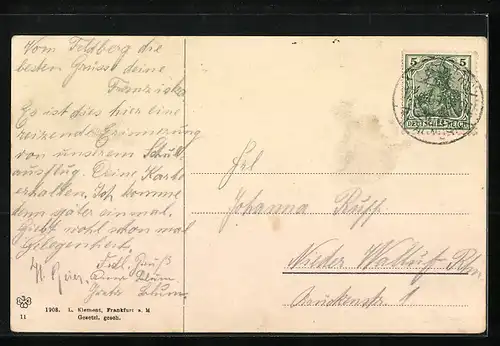 Vom Feldberg die
besten Grüsse deine
Franziska
Es ist dies hier eine
reizende Erinnerung
von unserem Schul
ausflug. Deine Karte
erhalten. Ich komme
denn später einmal.
Giebt wohl schon mal
Gelegenheit.
Frdl. Gruß
Anna Blum
Blum
Frl
Johanna Ruff
Nieder Walluf Rhn
Bruckenstr. 1
5 5
DEUTSCHES REICH
1908. L. Klement, Frankfurt a. M
11 Gesetzl. gesch.